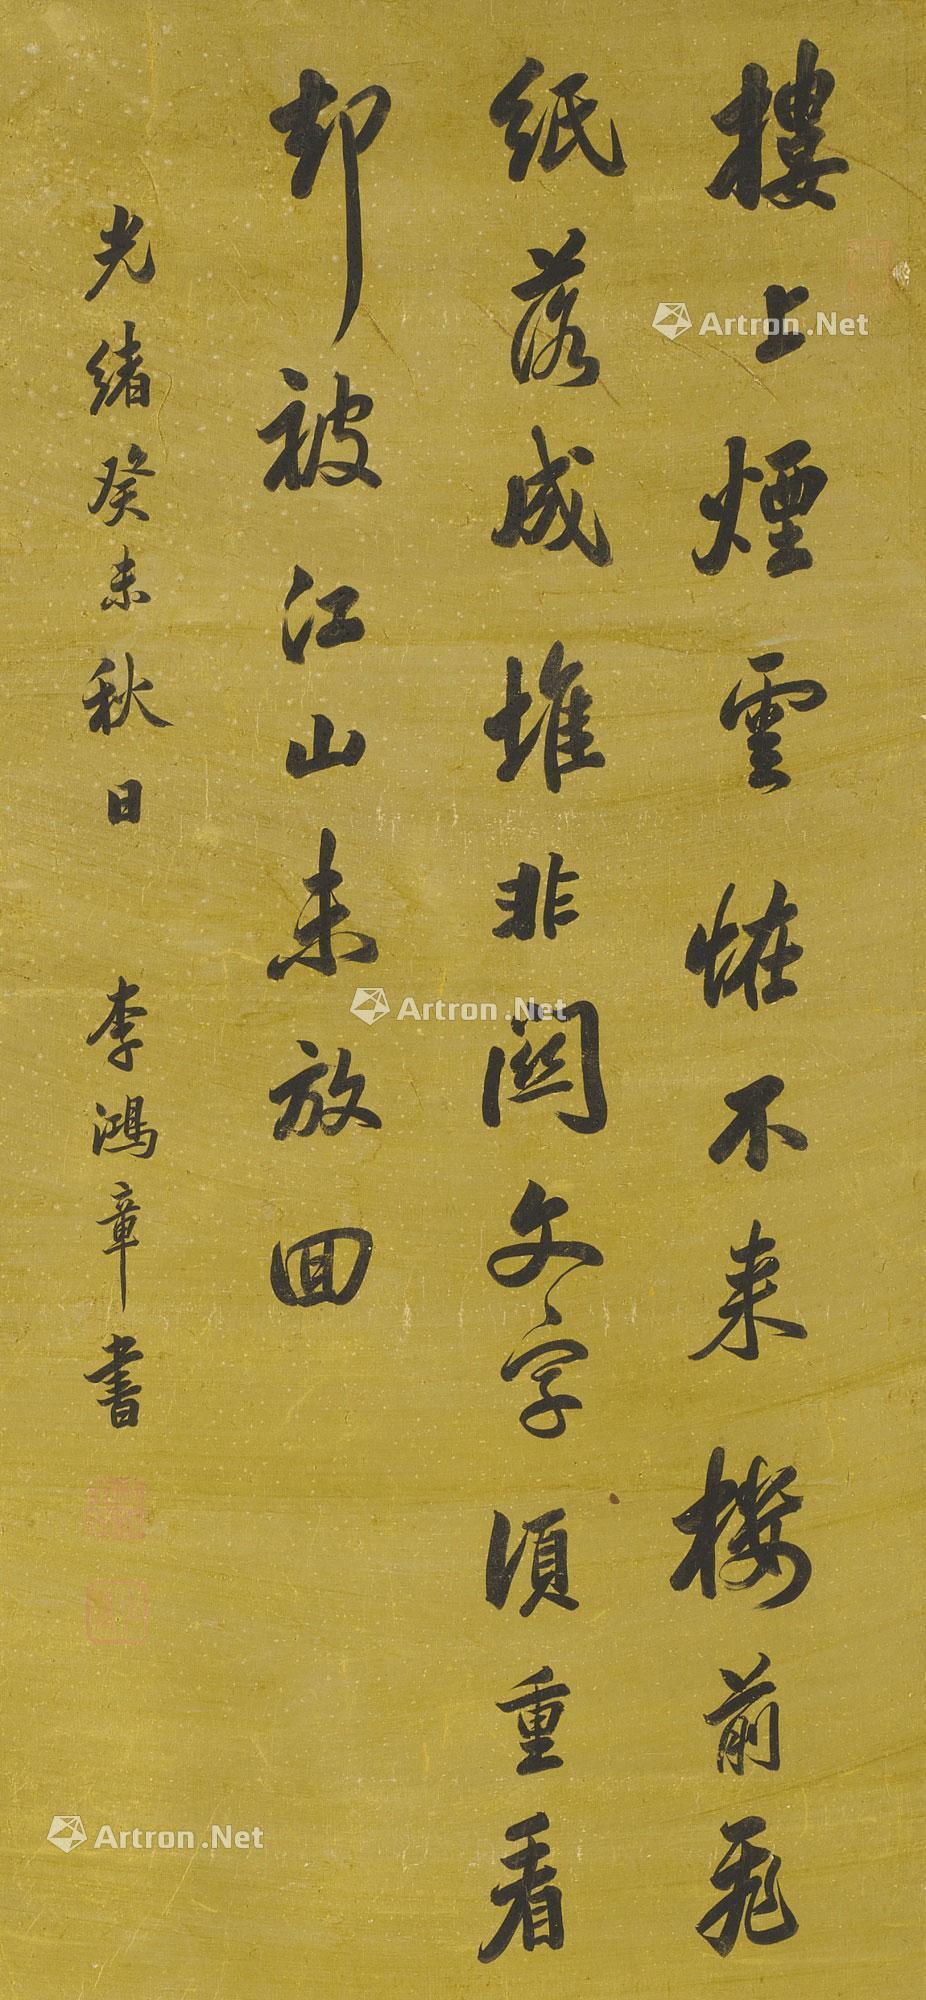 樓上煙雲恠不来樓前飛
紙落成堆非關文字須重看
却被江山未放回
光緒癸未秋日 李鴻章書
Artron.Net
Artron.Net
Artron.Net